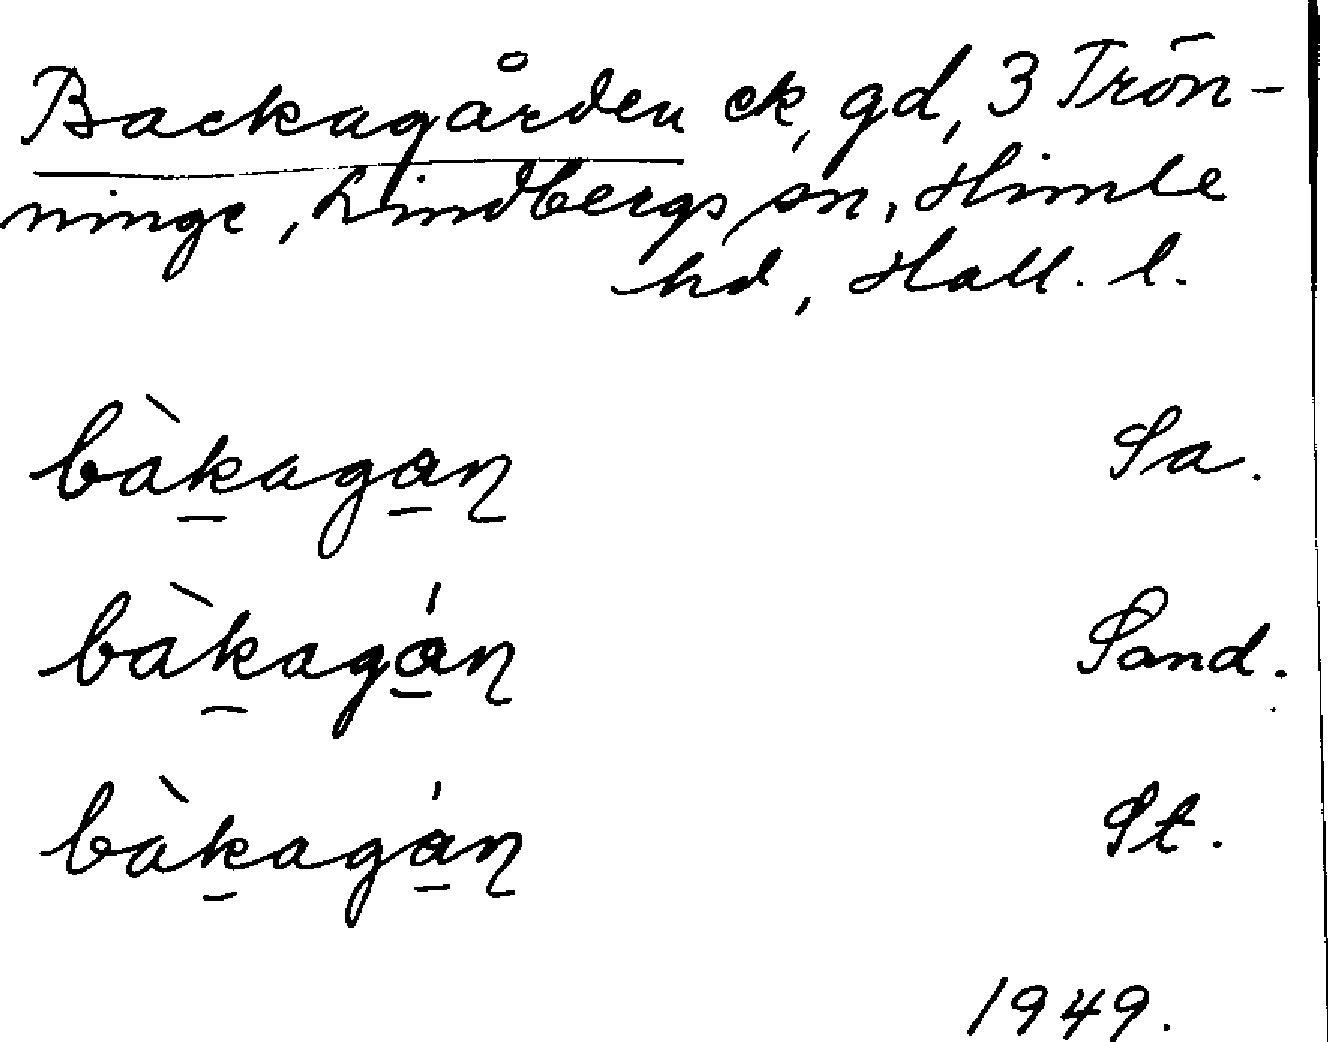 Backagården ek, gd, 3 Trön-
ninge, Lindbergs sn, Himle
hd, Hall. l.
bàk̲aga̲ɳ Sa.
bàk̲agá̲ɳ Sand.
bàk̲agá̲ɳ St.
1949.